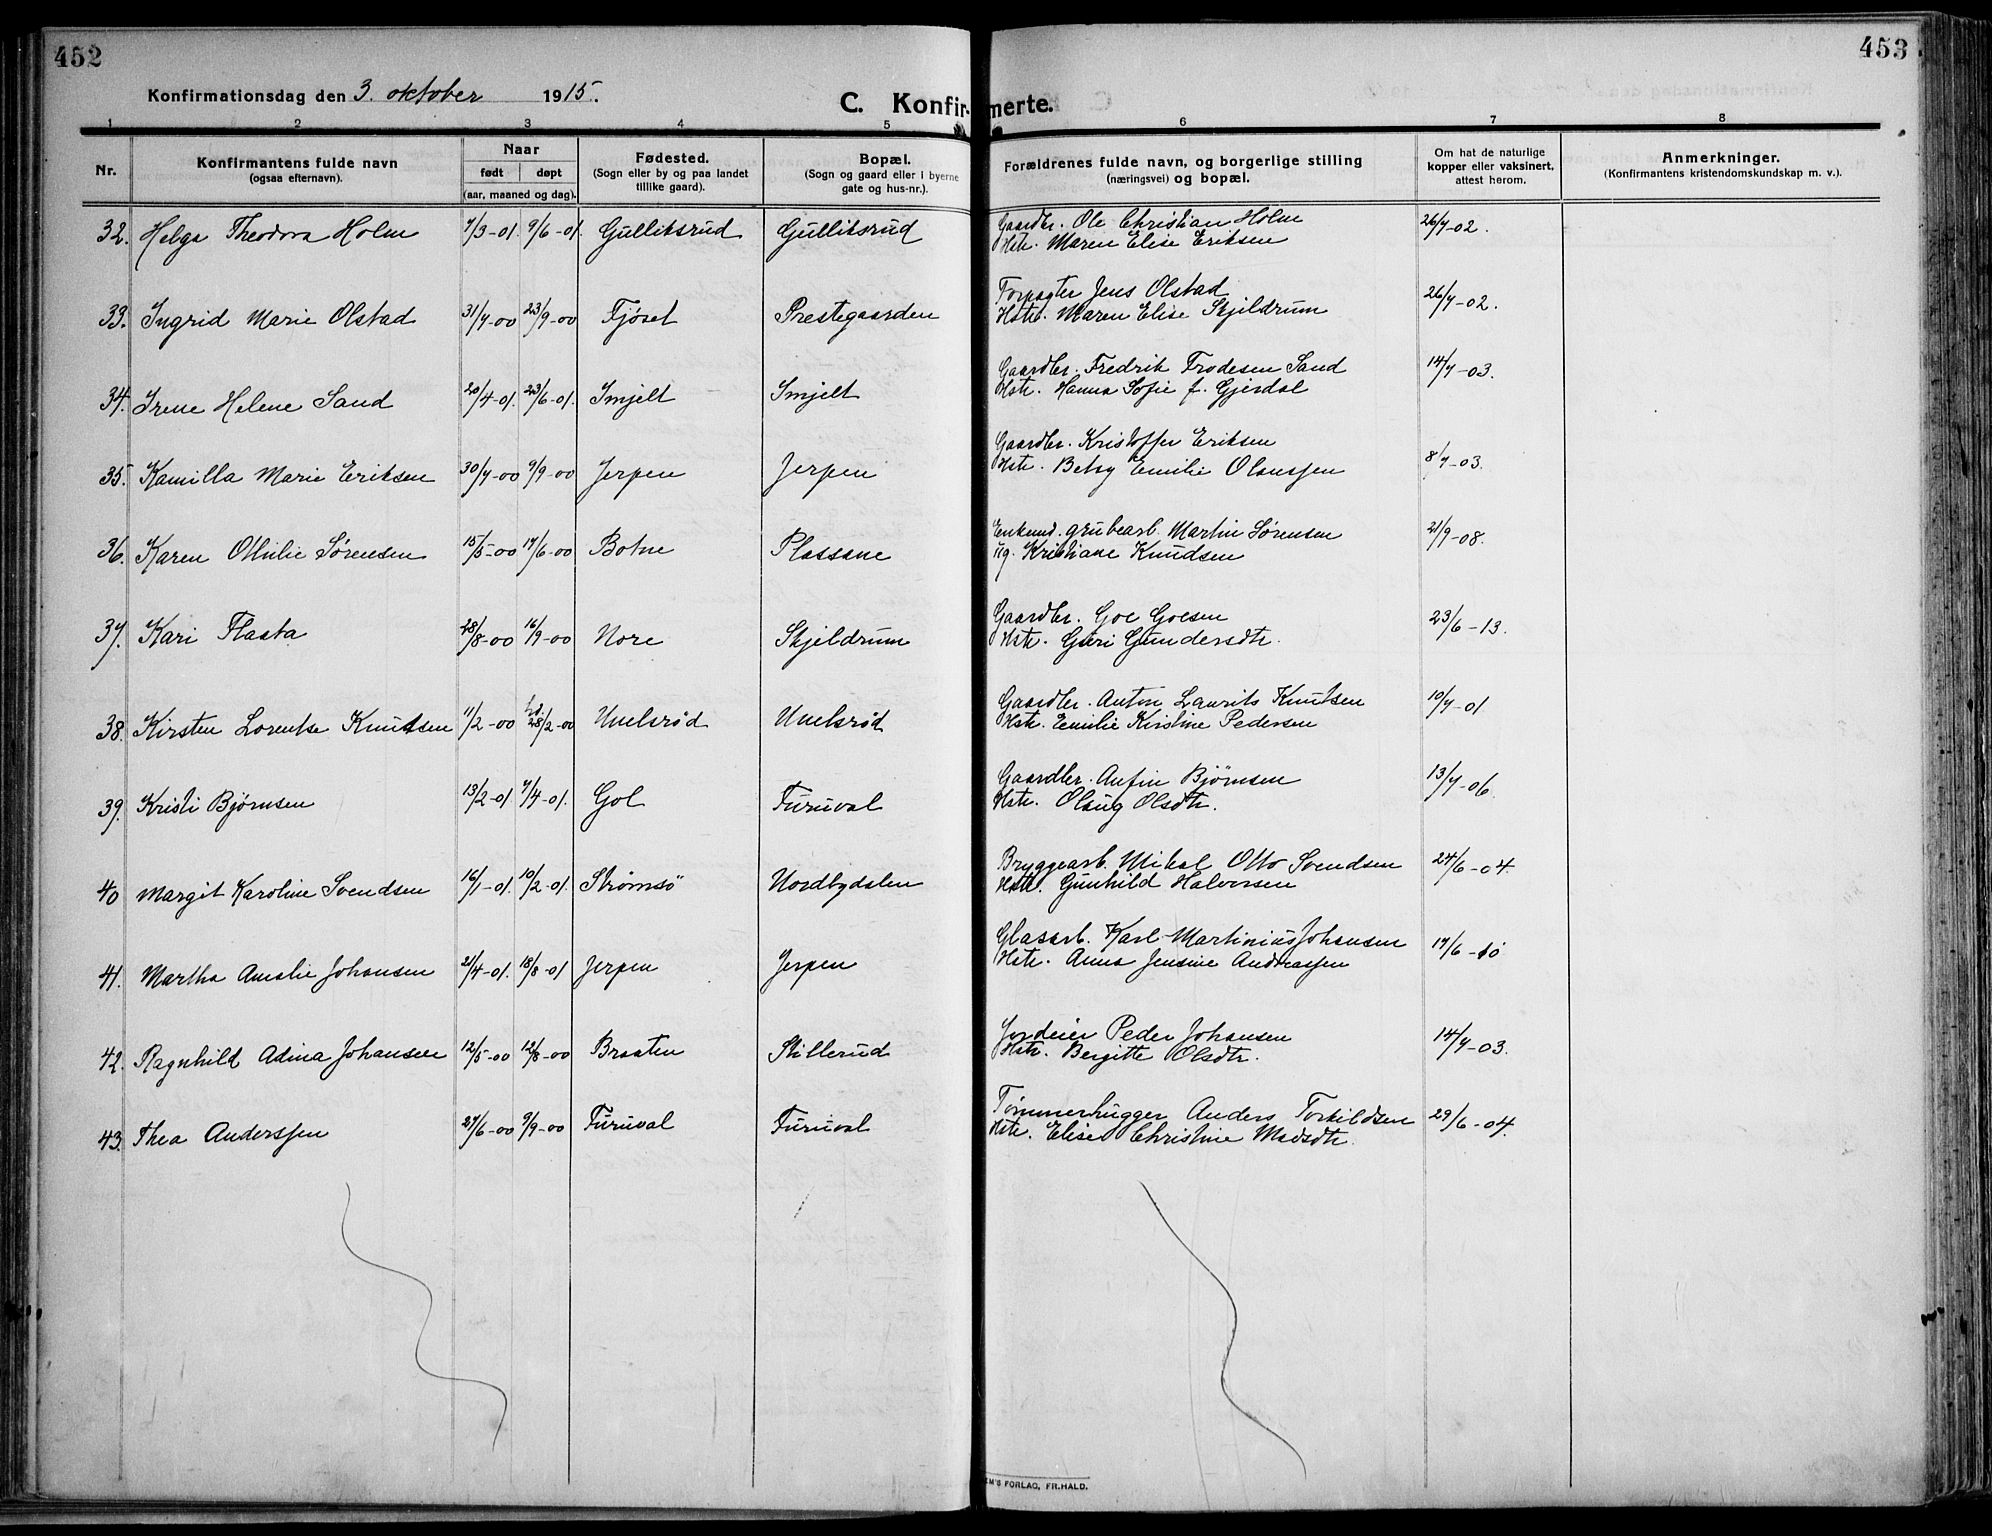 452
453
Konfirmationsdag den 3. oktober 1915.
C. Konfirmerte.
1 2 3 4 5 6 7 8
Nr.
Konfirmantens fulde navn
(ogsaa efternavn).
Naar
født døpt
(aar, maaned og dag).
Fødested.
(Sogn eller by og paa landet
tillike gaard).
Bopæl.
(Sogn og gaard eller i byerne
gate og hus-nr.).
Forældrenes fulde navn, og borgerlige stilling
(næringsvei) og bopæl.
Om hat de naturlige
kopper eller vaksinert,
attest herom.
Anmerkninger.
(Konfirmantens kristendomskundskap m. v.).
32. Helga Theodora Holm 7/3-01. 9/6-01. Gulliksrud Gulliksrud
Gaardbr. Ole Christian Holm
Hstr. Maren Elise Eriksen
26/7-02.
33. Ingrid Marie Olstad 31/7-00 23/9-00 Fjøset Prestegaarden
Forpagter Jens Olstad
Hstr. Maren Elise Skjildrum
26/7-02.
34. Irene Helene Sand 20/4-01. 23/6-01. Smjelt Smjelt
Gaardbr. Fredrik Frodesen Sand
Hstr. Hanna Sofie f. Gjerdal
14/7-03.
35. Kamilla Marie Eriksen 30/7-00 9/9-00 Jerpen Jerpen
Gaardbr. Kristoffer Eriksen
Hstr. Betsy Emilie Olaussen
8/7-03.
36. Karen Othilie Sørensen 15/5-00 17/6-00 Botne Plassane
Enkemd. grubearb. Martin Sørensen
ug. Kristiane Knudsen
21/9-08.
37. Kari Flaata 28/8-00 16/9-00 Nore Skjeldrum
Gaardbr. Goe Goesen
Hstr. Guri Gundersdtr.
23/6-13.
38. Kirsten Lorentse Knutsen 11/2-00 hd. 28/2-00 Unelsrød Unelsrød
Gaardbr. Anton Laurits Knutsen
Hstr. Emilie Kirstine Pedersen
10/7-01
39. Kristi Bjørnsen 13/2-01 7/4-01. Gol Furuval
Gaardbr. Anfin Bjørnsen
Hstr. Olaug Olsdtr.
13/7-06.
40 Margit Karoline Svendsen 16/1-01. 10/2-01. Strømsö Nordbydalen
Bryggearb. Mikal Otto Svendsen
Hstr. Gunhild Halvorsen
24/6-04.
41. Martha Amalie Johansen 21/4-01. 18/8-01 Jerpen Jerpen
Glasarb. Karl Martinius Johansen
Hstr. Anna Jensine Andreassen
17/6-10
42. Ragnhild Adina Johansen 12/5-00 12/8-00 Braaten Stillerud
Jordeier Peder Johansen
Hstr. Bergitte Olsdtr.
14/7-03.
43. Thea Anderssen 27/6-00 9/9-00 Furuval Furuval
Tømmerhugger Anders Torkildsen
Hstr. Elise Christine Madsdtr.
29/6-04.
EM'S FORLAG, FR.HALD.